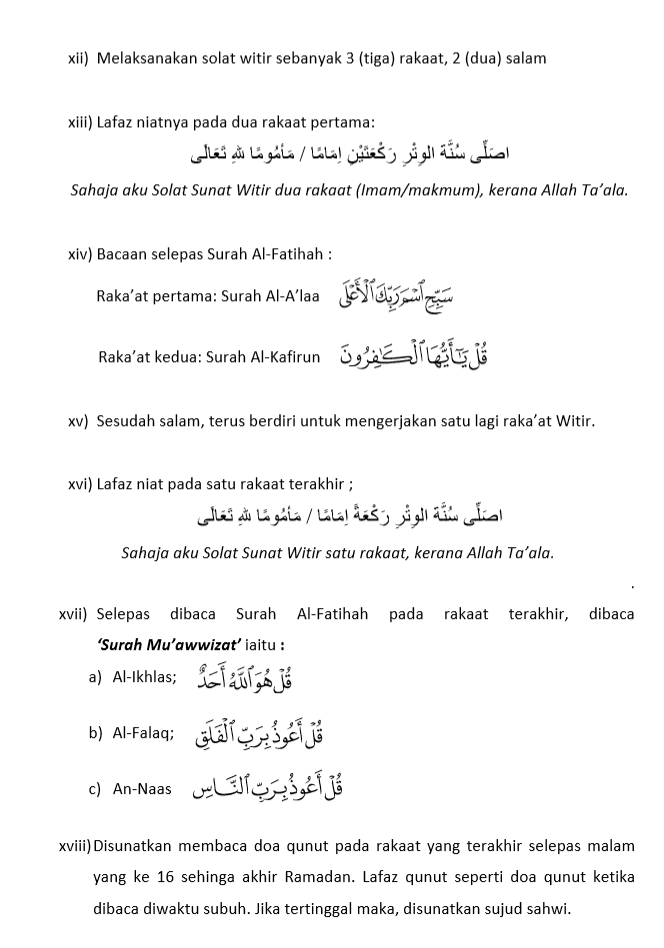 xii) Melaksanakan solat witir sebanyak 3 (tiga) rakaat, 2 (dua) salam
xiii) Lafaz niatnya pada dua rakaat pertama:
اصَلِّى سُنَّةَ الوِتْرِ رَكْعَتَيْنِ اِمَامًا / مَأمُومًا للهِ تَعَالَى
Sahaja aku Solat Sunat Witir dua rakaat (Imam/makmum), kerana Allah Ta’ala.
xiv) Bacaan selepas Surah Al-Fatihah :
Raka’at pertama: Surah Al-A’laa سَبِّحِ ٱسْمَ رَبِّكَ ٱلْأَعْلَى
Raka’at kedua: Surah Al-Kafirun قُلْ يَـٰٓأَيُّهَا ٱلْكَـٰفِرُونَ
xv) Sesudah salam, terus berdiri untuk mengerjakan satu lagi raka’at Witir.
xvi) Lafaz niat pada satu rakaat terakhir ;
اصَلِّى سُنَّةَ الوِتْرِ رَكْعَةً اِمَامًا / مَأمُومًا للهِ تَعَالَى
Sahaja aku Solat Sunat Witir satu rakaat, kerana Allah Ta’ala.
.
xvii) Selepas dibaca Surah Al-Fatihah pada rakaat terakhir, dibaca
‘Surah Mu’awwizat’ iaitu :
a) Al-Ikhlas; قُلْ هُوَ ٱللَّهُ أَحَدٌ
b) Al-Falaq; قُلْ أَعُوذُ بِرَبِّ ٱلْفَلَقِ
c) An-Naas قُلْ أَعُوذُ بِرَبِّ ٱلنَّاسِ
xviii)Disunatkan membaca doa qunut pada rakaat yang terakhir selepas malam
yang ke 16 sehinga akhir Ramadan. Lafaz qunut seperti doa qunut ketika
dibaca diwaktu subuh. Jika tertinggal maka, disunatkan sujud sahwi.